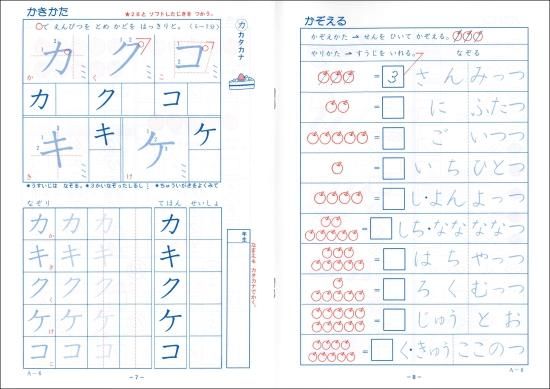 かきかた
★2Bと ソフトしたじきを つかう。
○で えんぴつを とめ かどを はっきりと。(L-19)
カ カタカナ
カ ク コ
か く こ
カ ク コ
キ キ ケ ケ
き け
★うすいじは なぞる。★3かいなぞったしるし ★ちゅういがきをよくみて
なぞり てほん せいしょ
カ カ カ カ
キ キ キ キ
ク ク ク ク
ケ ケ ケ ケ
コ コ コ コ
年生
なまえも カタカナでかく。
A-6
-7-
かぞえる
かぞえかた → せんを ひいて かぞえる。
やりかた → すうじを いれる。 なぞる
= 3 さん みっつ
= に ふたつ
= ご いつつ
= いち ひとつ
= し・よん よっつ
= しち・なな ななつ
= はち やっつ
= ろく むっつ
= じゅう とお
= く・きゅう ここのつ
-8-
A-6